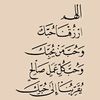 اللهم
ارزقنا حبك
وحب من يحبك
وحب كل عمل صالح
يقربنا إلى حبك